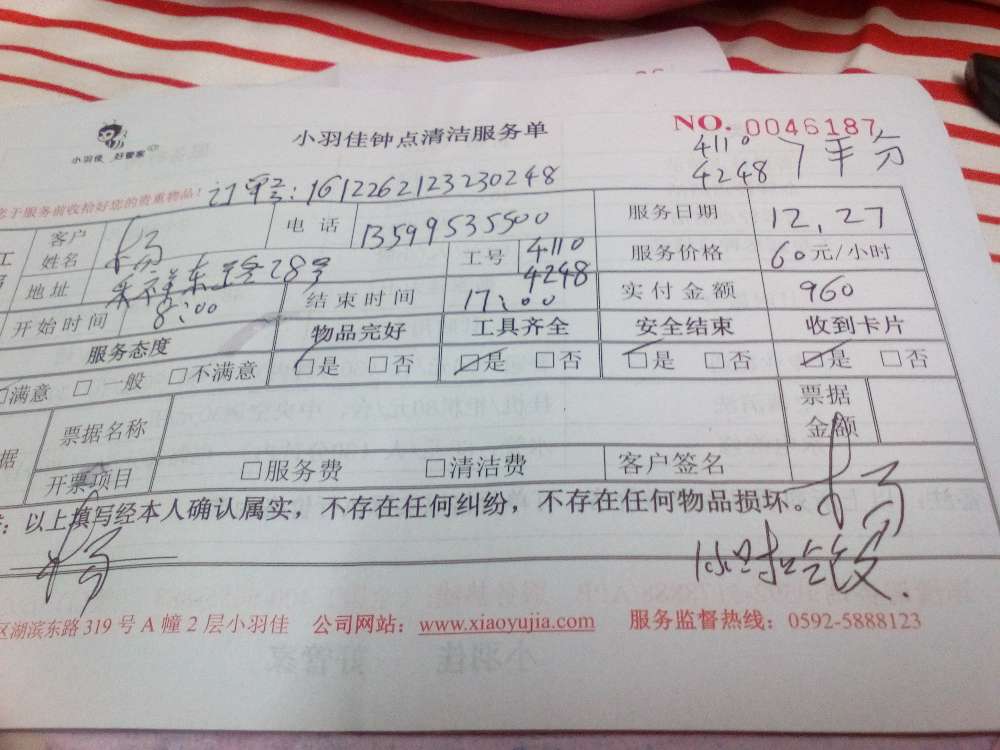 小羽佳 好管家
小羽佳钟点清洁服务单
NO. 0046187
4110
4248 平分
于服务前收拾好您的贵重物品！
订单：1612262123230248
客户姓名 杨 电话 13599535500 服务日期 12.27
地址 东路28号 工号 4110 4248 服务价格 60元/小时
开始时间 8:00 结束时间 17:00 实付金额 960
服务态度 物品完好 工具齐全 安全结束 收到卡片
□满意 □一般 □不满意 □是 □否 □是 □否 □是 □否 □是 □否
据 票据名称 票据金额
开票项目 □服务费 □清洁费 客户签名
：以上填写经本人确认属实，不存在任何纠纷，不存在任何物品损坏。杨
杨
区湖滨东路319号A幢2层小羽佳 公司网站：www.xiaoyujia.com 服务监督热线：0592-5888123